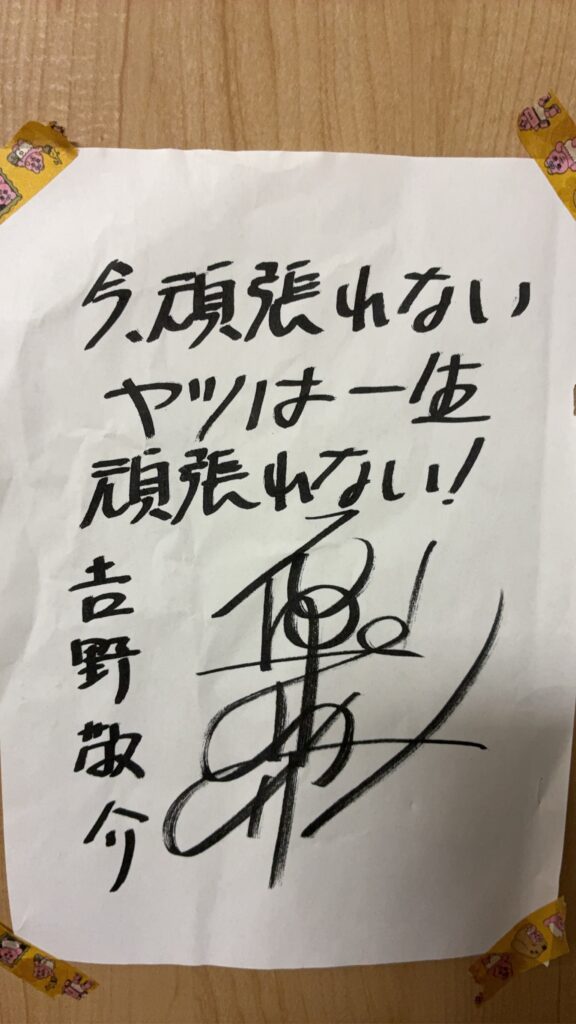 今、頑張れない
ヤツは一生
頑張れない!
吉野敬介